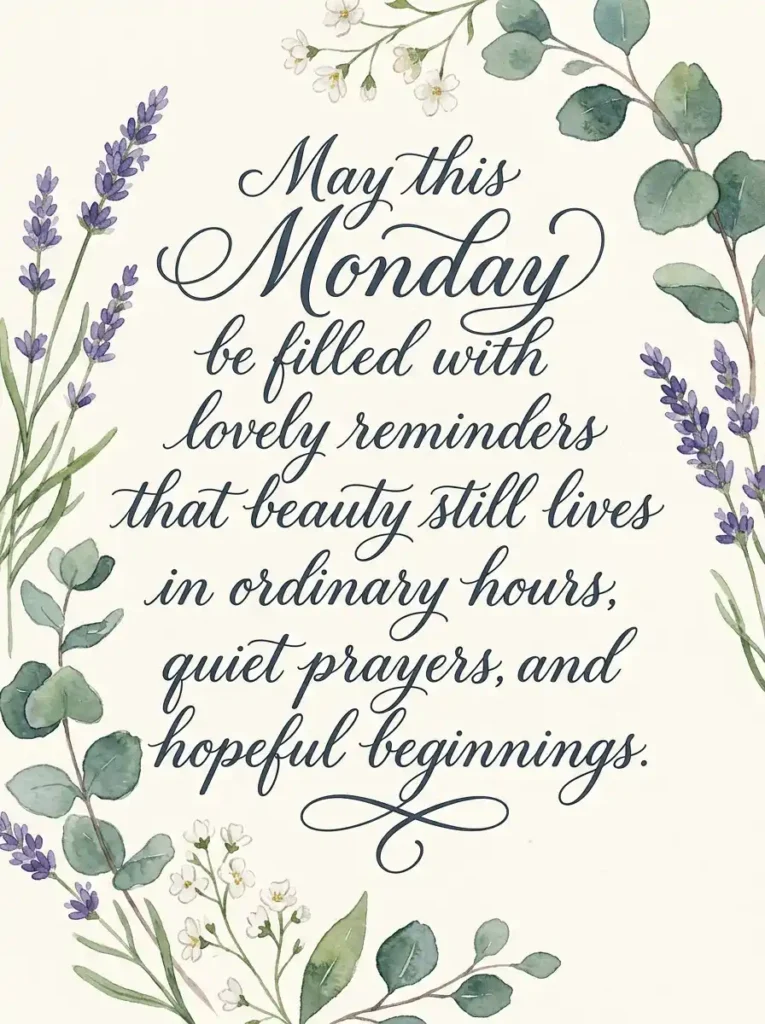 May this
Monday
be filled with
lovely reminders
that beauty still lives
in ordinary hours,
quiet prayers, and
hopeful beginnings.